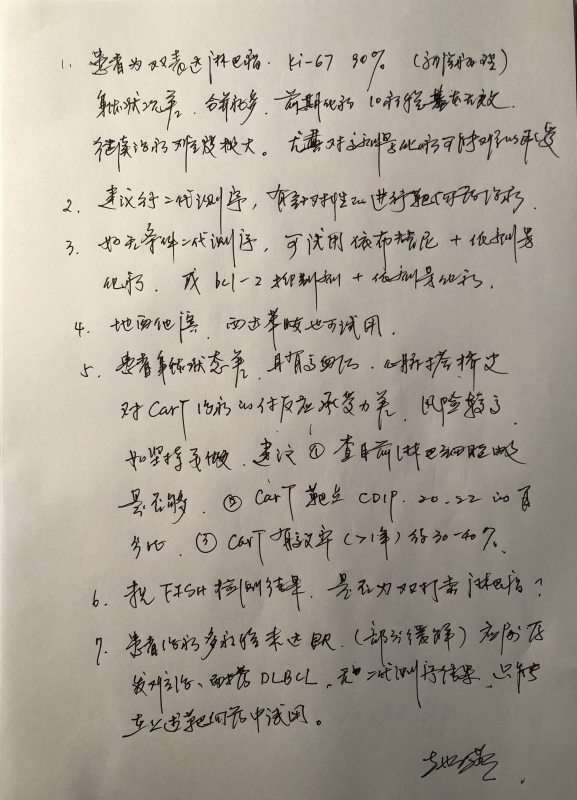 1. 患者为双表达淋巴瘤. Ki-67 90% (初诊病理)
身体状况差、合并症多, 前期化疗10疗程基本无效.
继续治疗难度极大。尤其对主剂量化疗可能难以承受
2. 建议行二代测序, 有针对性的进行靶向药治疗.
3. 如无条件二代测序, 可试用依布替尼 + 低剂量
化疗, 或 bcl-2 抑制剂 + 低剂量化疗.
4. 地西他滨、西达苯胺也可试用.
5. 患者身体状态差、具有高血压、心脏搭桥史
对CarT治疗的付反应承受力差、风险较高
如坚持要做, 建议 ① 查目前淋巴细胞数
是否够、② CarT靶点 CD19. 20. 22的百
分比、③ CarT有效率(>1年)约30-40%.
6. 我 FISH 检测结果、是否为双打击淋巴瘤?
7. 患者治疗多疗程未达PR, (部分缓解) 应属于
复发难治、耐药 DLBCL, 无二代测序结果, 只能
在上述靶向药中试用。